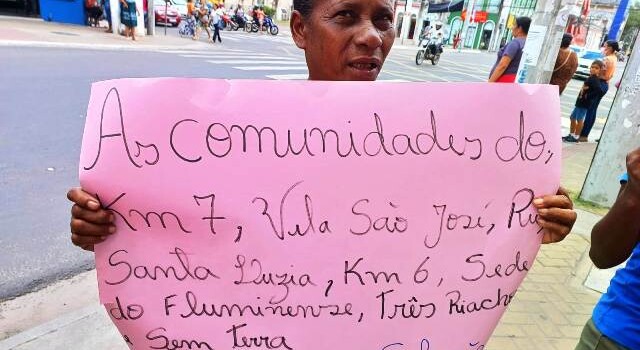 As comunidades do,
Km 7, Vila São José,
Santa Luzia, Km 6, Sede
do Fluminense, Três Riacho
Sem Terra